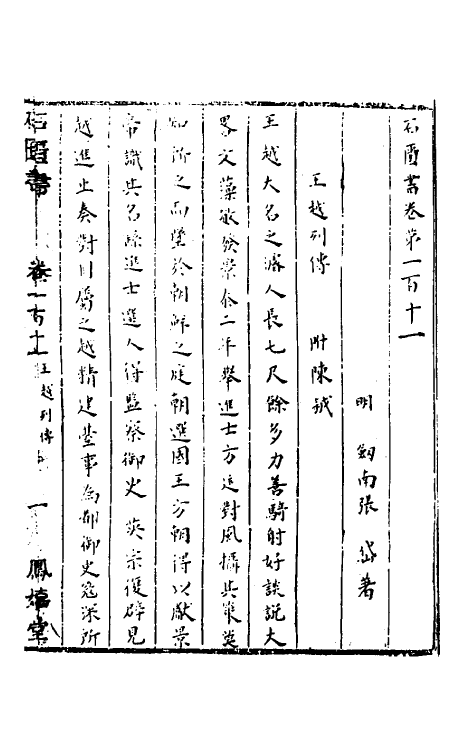 石匱書卷第一百十一
明 劒南張 岱著
王越列傳 附陳鉞
王越大名之濬人長七尺餘多力善騎射好談說大
畧文藻敏發景泰二年舉進士方廷對風攝其策莫
知所之而墮於朝鮮之庭朝選國王方朝得以獻景
帝識其名緣進士選人得監察御史 英宗復辟見
越進止奏對目屬之越精建臺事為都御史寇深所
石匱書 卷一百十一 王越列傳 一 鳳嬉堂